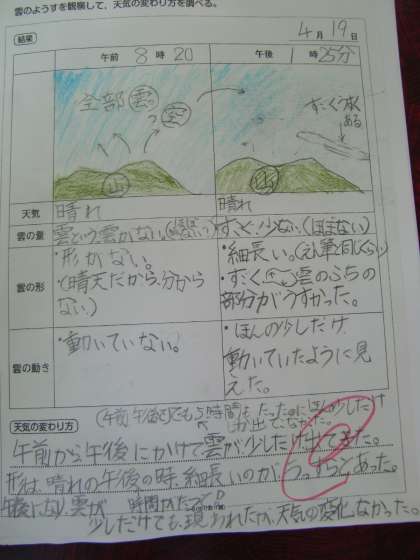 雲のようすを観察して、天気の変わり方を調べる。
結果
4月19日
午前 8時20
午後 1時25分
全部 雲っ 空
すごくうすく
ある
山
山
天気
晴れ
晴れ
雲の量
雲という雲がない。
すごく少ない。(ほぼない)
雲の形
・形がない。
(晴天だから、分から
ない。)
・細長い。(えん筆と同じくらい)
・すごく雲のふちの
部分がうすかった。
雲の動き
・動いていない。
・ほんの少しだけ
動いていたように見
えた。
天気の変わり方
(午前 午後)でも5時間もたったのにほんの少しだけ
しか出てなかった。
午前から午後にかけて雲が少しだけ出てきた。
形は、晴れの午後の時、細長いのがうっすらとあった。
午後になり、雲が 時間がたって
少しだけでも現われたが、天気の変化なかった。